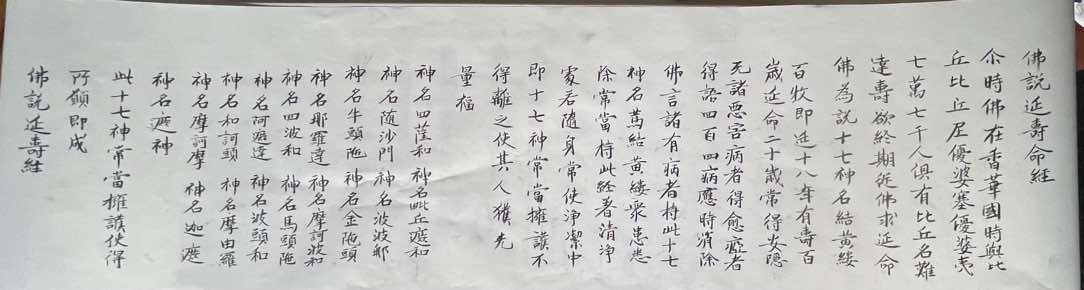 佛說延壽命經
尒時佛在香華國時與比
丘比丘尼優婆塞優婆夷
七萬七千人俱有比丘名難
達壽欲終期從佛求延命
佛為説十七神名結黃縷
百牧即延十八年有壽百
歲延命二十歲常得安隱
无諸惡害病者得愈瘂者
得語四百四病應時消除
佛言諸有病者持此十七
神名萬結黃縷眾患悉
除常當持此經著清淨
處若隨身常使淨潔中
即十七神常當擁護不
得離之使其人獲无
量福
神名四薩和 神名毗丘遮和
神名随沙門 神名波波耶
神名牛頭陁 神名金陁頭
神名耶羅達 神名摩訶波和
神名四波和 神名馬頭陁
神名阿遮達 神名波頭和
神名和訶頭 神名摩由羅
神名摩訶摩 神名迦遮
神名遮神
此十七神常當擁護使得
所願即成
佛説延壽經